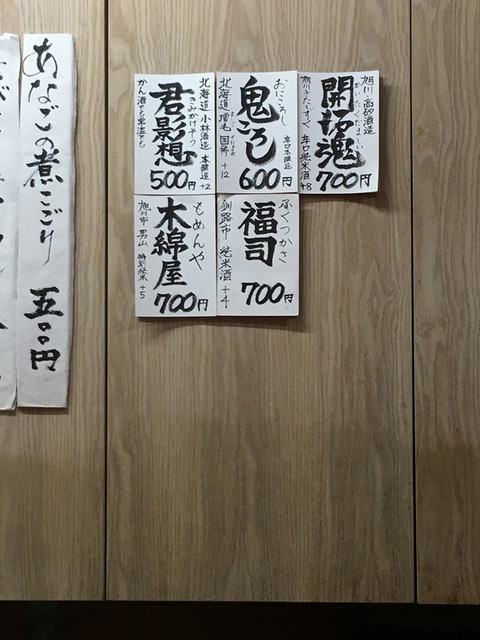 旭川・高砂酒造
かいたくだましい
開拓魂
旭川きたいすづく 辛口純米酒 +8
700円
おにころし
辛口本醸造
鬼ころし
北海道増毛 国稀 +12
600円
北海道 小林酒造 本醸造 +2
きみかげそう
君影想
かん酒でも常温でも
500円
ふくつかさ
福司
釧路市 純米酒 +4
700円
もめんや
木綿屋
旭川市 男山 特別純米 +5
700円
あなごの煮こごり 五〇〇円